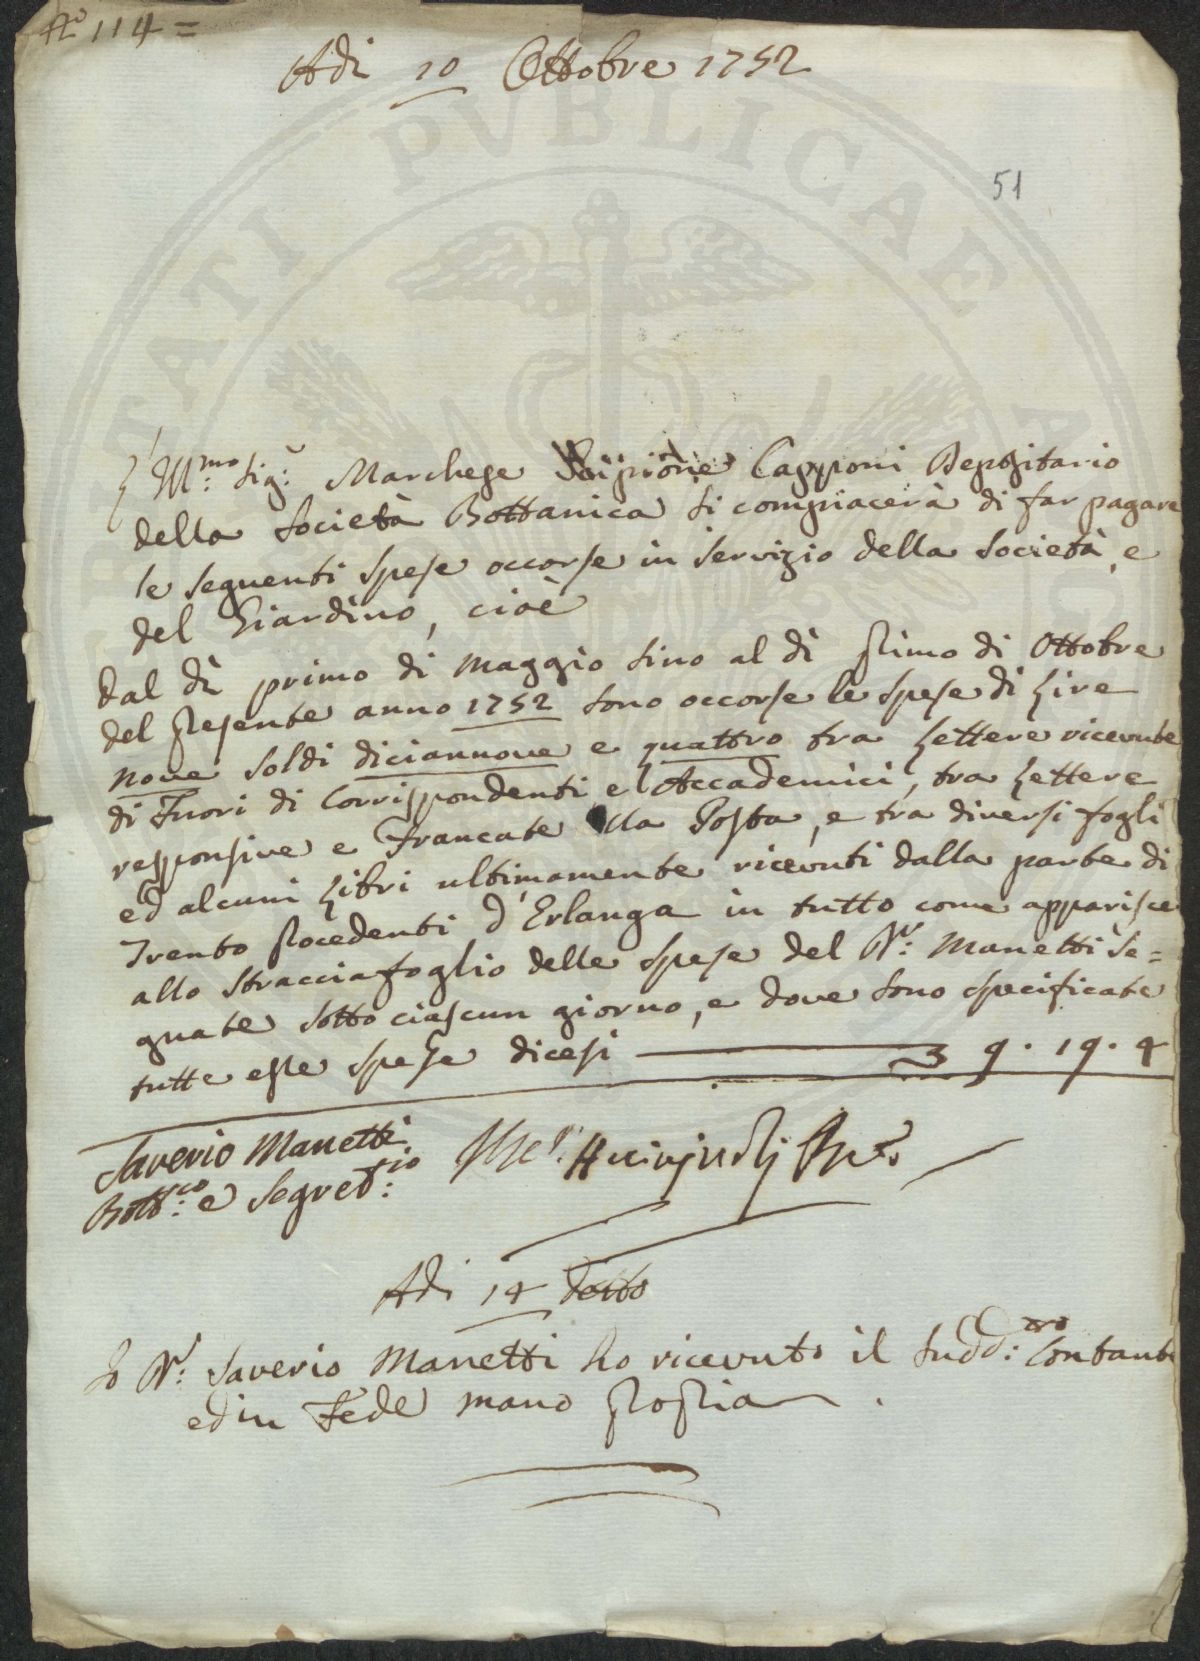 N.o 114 =
Adi 10 Ottobre 1752
51
L'Ill.mo Sig.r Marchese Scipione Capponi Depositario
della Società Bottanica si compiacerà di far pagare
le seguenti spese occorse in servizio della Società, e
del Giardino, cioè
Dal dì primo di Maggio sino al dì primo di Ottobre
del presente anno 1752 sono occorse le spese di Lire
nove soldi diciannove e quattro tra Lettere ricevute
di Fuori di Corrispondenti e Accademici, tra Lettere
responsive e Francate alla Posta, e tra diversi fogli
ed alcuni Libri ultimamente ricevuti dalla parte di
Trento procedenti d'Erlanga in tutto come apparisce
allo Stracciafoglio delle spese del D.r Manetti Se=
gnate sotto ciascun giorno, e dove sono specificate
tutte esse spese dicesi 9 . 19 . 4
Saverio Manetti
Bott.co e Segret.rio
Adi 14 detto
Io D.r Saverio Manetti ho ricevuto il sudd.: Contante
ed in Fede mano propria .
PVBLICAE